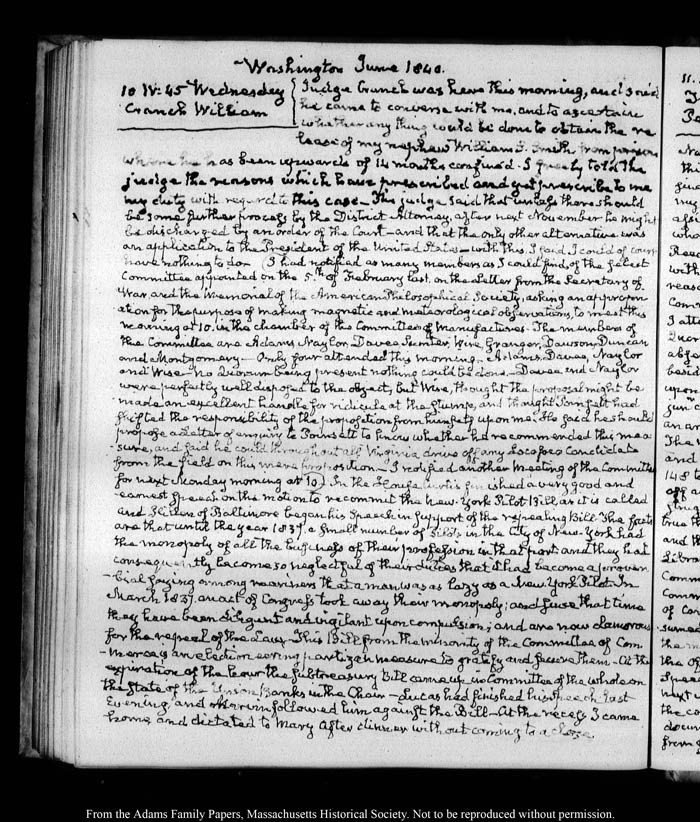 Washington June 1840.
10 IV:45 Wednesday
Cranch William
Judge Cranch was here this morning, and said
he came to converse with me, and to ascertain
whether any thing could be done to obtain the re
lease of my nephew William S. Smith from prison
where he has been upwards of 14 months confined. I freely told the
judge the reasons which have prescribed and yet prescribe to me
my duty with regard to this case. The judge said that unless there should
be some further process by the District Attorney, after next November he might
be discharged by an order of the Court—and that the only other alternative was
an application to the President of the United States—with this I said I could of course
have nothing to do. I had notified as many members as I could find, of the select
Committee appointed on the 5th of February last, on the Letter from the Secretary of
War and the Memorial of the American Philosophical Society, asking an appropri
ation for the purpose of making magnetic and meteorological observations, to meet this
morning at 10. in the chamber of the Committee of Manufactures. The members of
the Committee are Adams, Naylor, Davee, Wise, Granger, Dawson, Duncan
and Montgomery—Only four attended this morning—Adams, Davee, Naylor
and Wise—no Quorum being present nothing could be done—Davee and Naylor
were perfectly well disposed to the object, but Wise, thought the proposal might be
made an excellent handle for ridicule at the stump, and thought Poinsett had
shifted the responsibility of the proposition from himself upon me. He said he should
propose a Letter of enquiry to Poinsett to know whether he recommended this mea
-sure, and said he could throughout all Virginia drive off any Locofoco candidate
from the field on this mere proposition—I notified another Meeting of the Committee
for next Monday morning at 10. In the House Curtis finished a very good and
earnest speech on the motion to recommit the New-York Pilot Bill as it is called
and Hillen of Baltimore began his Speech in support of the repealing Bill. The facts
are that until the year 1837. a small number of Pilots in the City of New-York had
the monopoly of all the business of their profession in that port and they had
consequently become so neglectful of their duties that it had become a prover
-bial saying among mariners that a man was as lazy as a New York Pilot. In
March 1837, an act of Congress took away their monopoly; and since that time
they have been diligent and vigilant upon compulsion; and are now clamorous
for the repeal of the Law. This Bill from the minority of the Committee of Com
-merce is an electioneering partizan measure to gratify and secure them—At the
expiration of the hour the subtreasury Bill came up in Committee of the whole on
the State of the Union Banks in the Chair— had finished his speech last
Evening, and Marvin followed him against the Bill—At the recess I came
home, and dictated to Mary after dinner without coming to a close
From the Adams Family Papers, Massachusetts Historical Society. Not to be reproduced without permission.